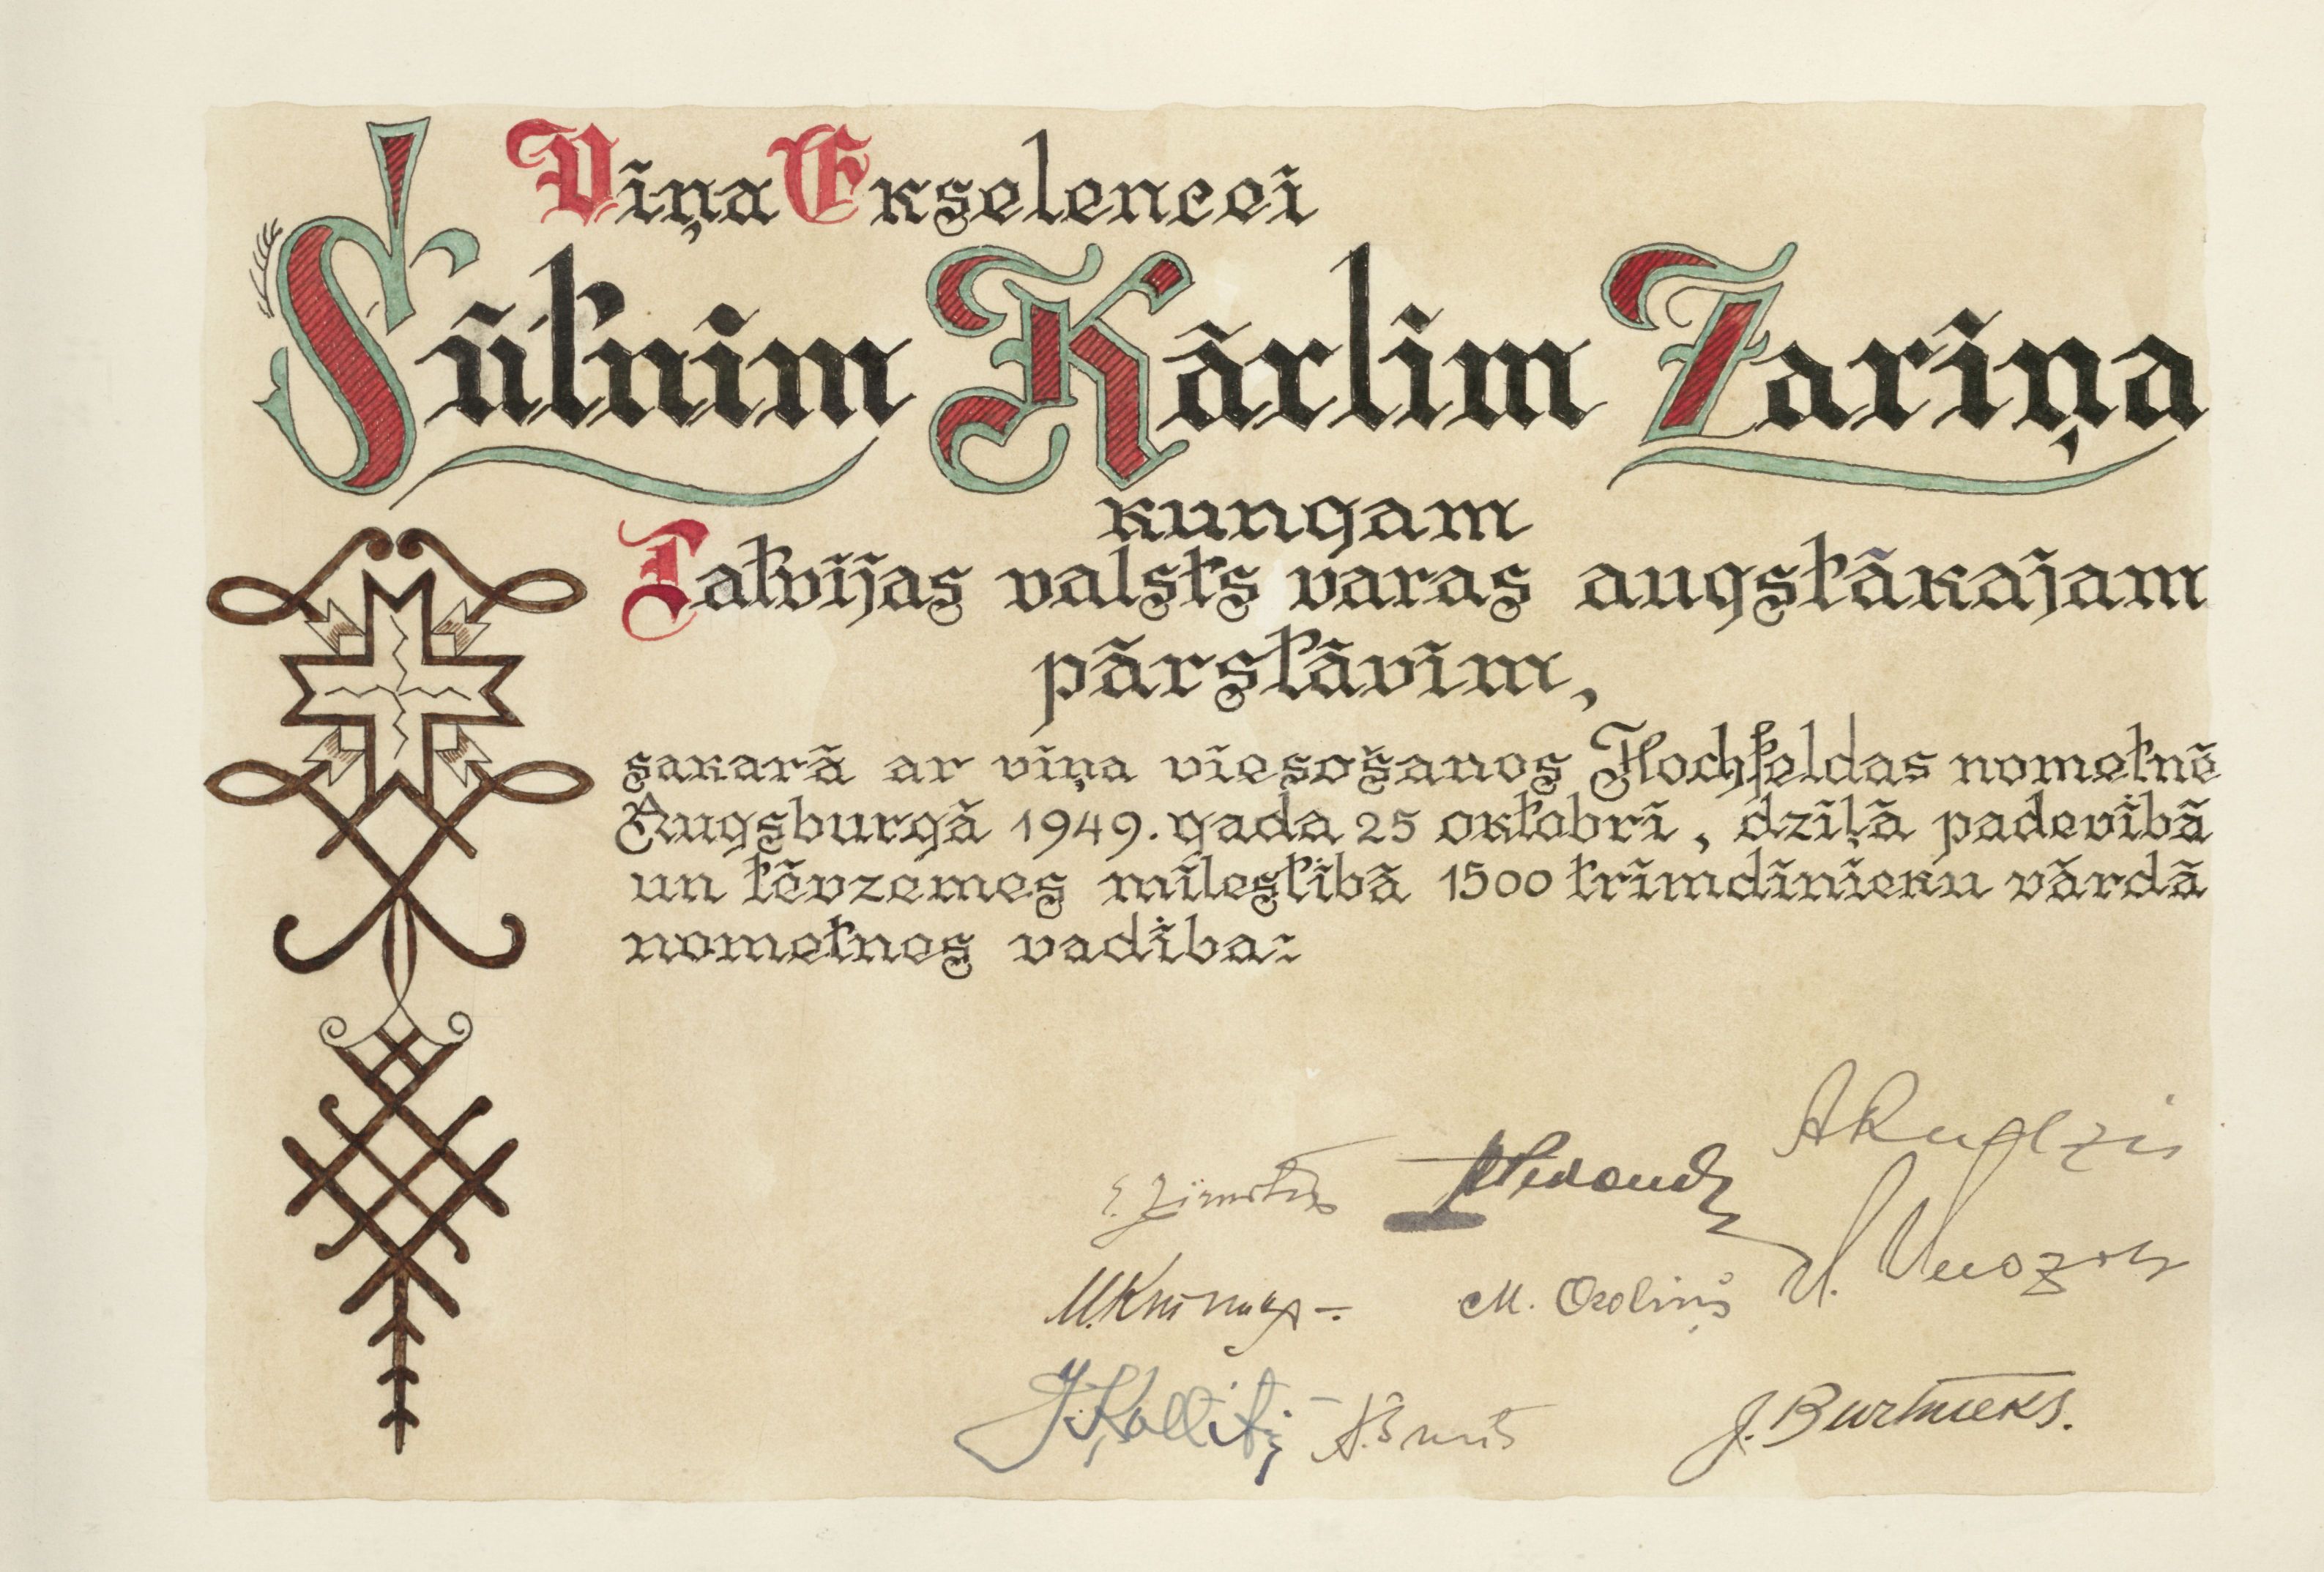 Viņa Ekselencei
Sūtnim Kārlim Zariņa
kungam
Latvijas valsts varas augstākajam
pārstāvim,
sakarā ar viņa viesošanos Hochfeldas nometnē
Augsburgā 1949. gada 25 oktobrī, dziļā padevībā
un tēvzemes mīlestībā 1500 trimdinieku vārdā
nometnes vadība:
M. Ozoliņš
J. Burtnieks.